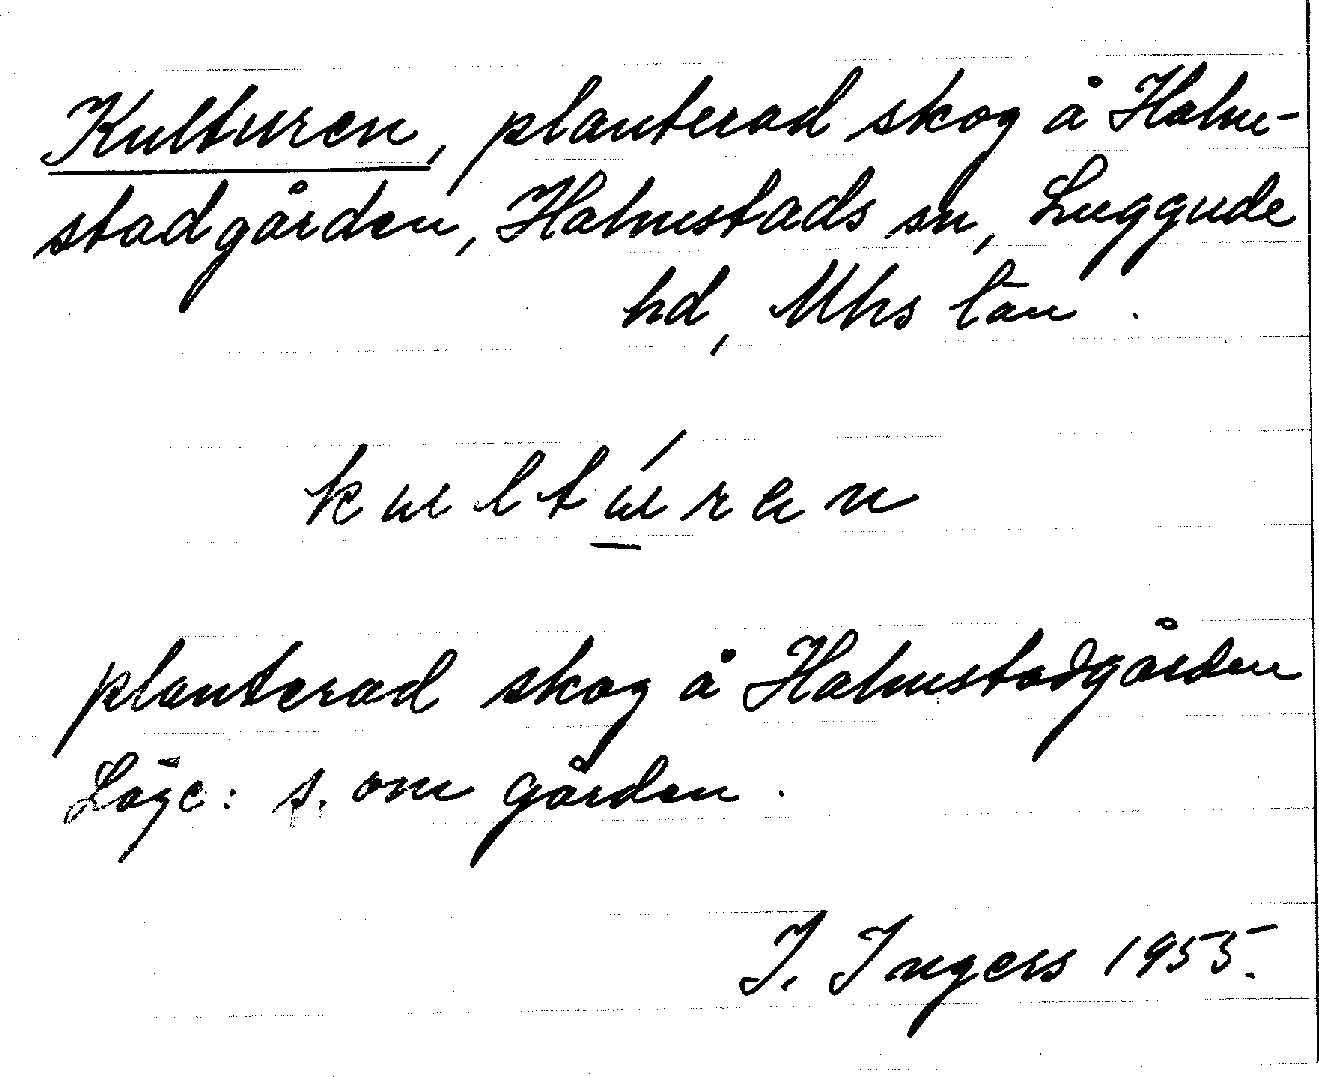 Kulturen, planterad skog å Halm-
stadgården, Halmstads sn, Luggude
hd, Mhs län.
kultúran
planterad skog å Halmstadgården
Läge: s. om gården.
I. Ingers 1955.